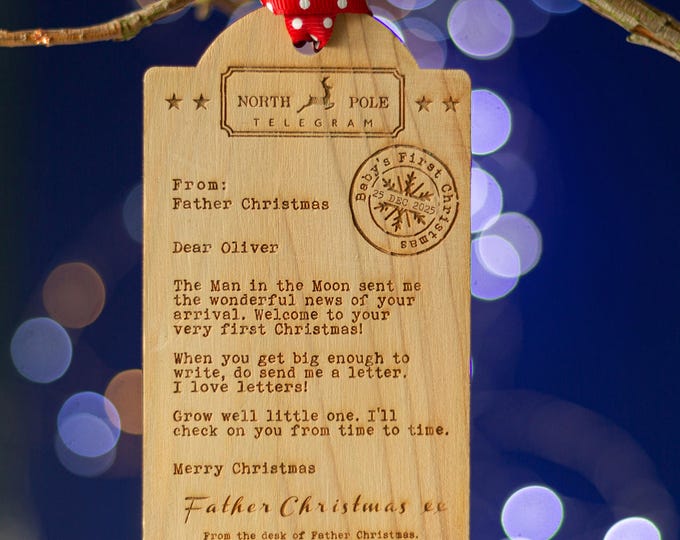 NORTH POLE
TELEGRAM
Baby's First Christmas
25 DEC 2025
From:
Father Christmas
Dear Oliver
The Man in the Moon sent me
the wonderful news of your
arrival. Welcome to your
very first Christmas!
When you get big enough to
write, do send me a letter.
I love letters!
Grow well little one. I'll
check on you from time to time.
Merry Christmas
Father Christmas
From the desk of Father Christmas.